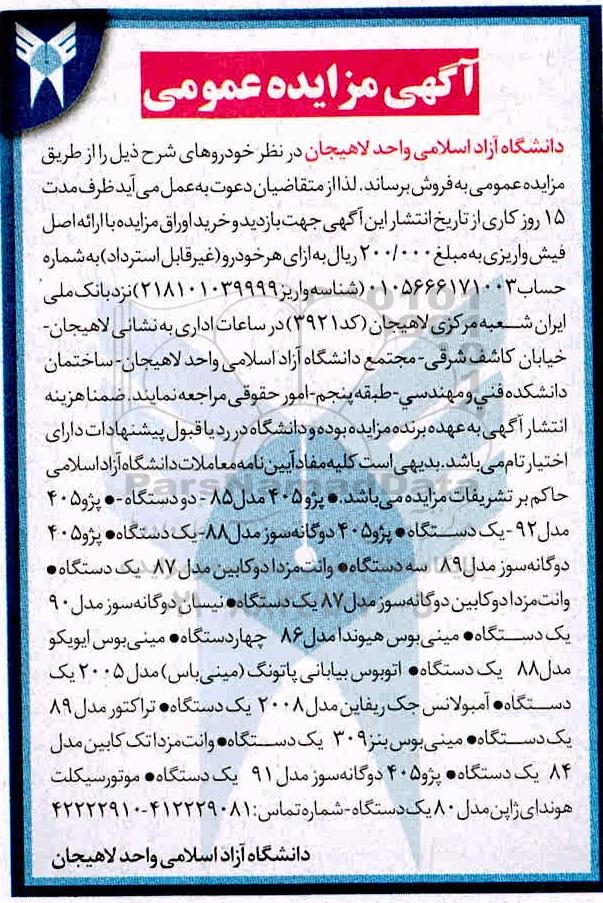 آگهی مزایده عمومی
دانشگاه آزاد اسلامی واحد لاهیجان در نظر خودروهای شرح ذیل را از طریق
مزایده عمومی به فروش برساند. لذا از متقاضیان دعوت به عمل می آید ظرف مدت
۱۵ روز کاری از تاریخ انتشار این آگهی جهت بازدید و خرید اوراق مزایده با ارائه اصل
فیش واریزی به مبلغ ۲۰۰/۰۰۰ ریال به ازای هر خودرو (غیرقابل استرداد) به شماره
حساب ۰۱۰۵۶۶۶۱۷۱۰۰۳ (شناسه واریز ۲۱۸۱۰۱۰۳۹۹۹۹) نزد بانک ملی
ایران شعبه مرکزی لاهیجان (کد ۳۹۲۱) در ساعات اداری به نشانی لاهیجان-
خیابان کاشف شرقی- مجتمع دانشگاه آزاد اسلامی واحد لاهیجان- ساختمان
دانشکده فني و مهندسي- طبقه پنجم- امور حقوقی مراجعه نمایند. ضمنا هزینه
انتشار آگهی به عهده برنده مزایده بوده و دانشگاه در رد یا قبول پیشنهادات دارای
اختیار تام می باشد. بدیهی است کلیه مفاد آیین نامه معاملات دانشگاه آزاد اسلامی
حاکم بر تشریفات مزایده می باشد.● پژو ۴۰۵ مدل ۸۵ - دو دستگاه -● پژو ۴۰۵
مدل ۹۲ - یک دستگاه ● پژو ۴۰۵ دوگانه سوز مدل ۸۸- یک دستگاه● پژو ۴۰۵
دوگانه سوز مدل ۸۹ سه دستگاه● وانت مزدا دو کابین مدل ۸۷ یک دستگاه ●
وانت مزدا دو کابین دوگانه سوز مدل ۸۷ یک دستگاه● نیسان دوگانه سوز مدل ۹۰
یک دستگاه● مینی بوس هیوندا مدل ۸۶ چهار دستگاه● مینی بوس ایویکو
مدل ۸۸ یک دستگاه● اتوبوس بیابانی پاتونگ (مینی باس) مدل ۲۰۰۵ یک
دستگاه● آمبولانس جک ریفاین مدل ۲۰۰۸ یک دستگاه● تراکتور مدل ۸۹
یک دستگاه● مینی بوس بنز ۳۰۹ یک دستگاه● وانت مزدا تک کابین مدل
۸۴ یک دستگاه● پژو ۴۰۵ دوگانه سوز مدل ۹۱ یک دستگاه● موتورسیکلت
هوندای ژاپن مدل ۸۰ یک دستگاه - شماره تماس: ۴۱۲۲۲۹۰۸۱-۴۲۲۲۲۹۱۰
دانشگاه آزاد اسلامی واحد لاهیجان
ParsNamadData